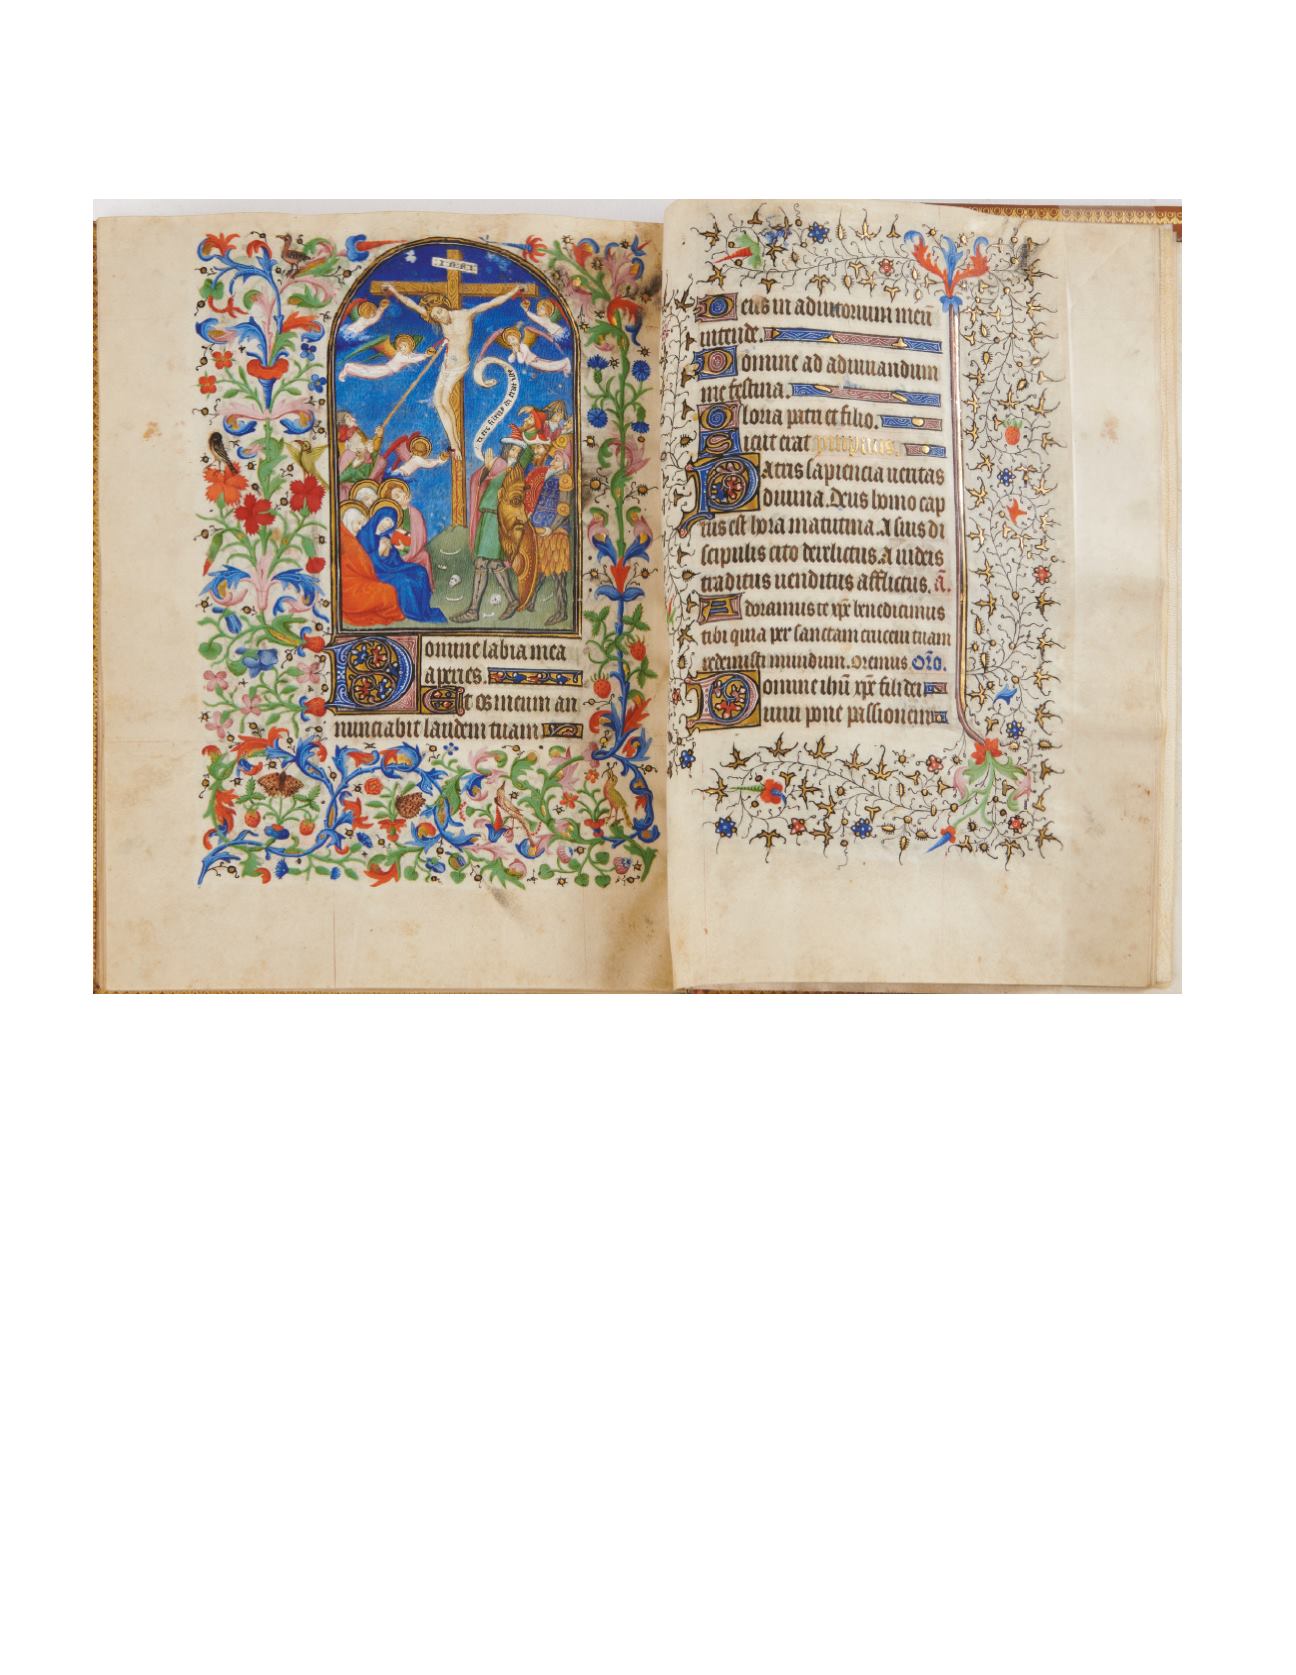 INRI
vere filius dei erat iste
Domine labia mea
aperies.
Et os meum an
nunciabit laudem tuam
Deus in adiutorium meū
intende.
Domine ad adiuuandum
me festina.
Gloria patri et filio.
Sicut erat
Patris sapiencia ueritas
diuina. Deus homo cap
tus est hora matutina. A suis di
scipulis cito derelictus. a iudeis
traditus uenditus afflictus. a͞.
Adoramus te xp̄e benedicimus
tibi quia per sanctam crucem tuam
redemisti mundum. Oremus Or̄o.
Domine ihū xp̄e fili dei
uiui pone passionem